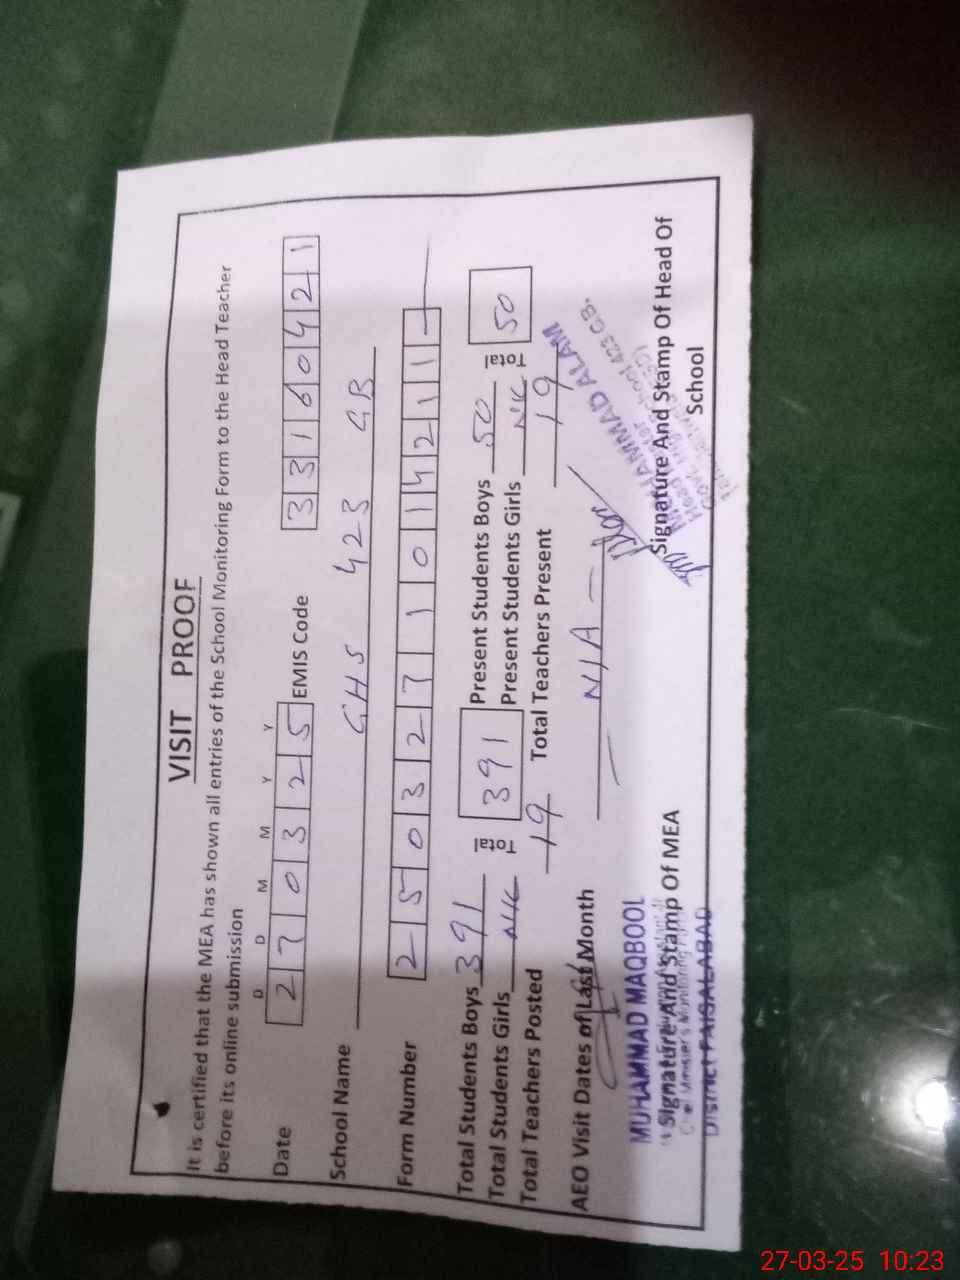 VISIT PROOF
It is certified that the MEA has shown all entries of the School Monitoring Form to the Head Teacher
before its online submission
D D M M Y Y
Date 270325 EMIS Code 33160421
School Name GHS 423 GB
Form Number 2503271014211-
Total Students Boys 391 Total 391 Present Students Boys 50 Total 50
Total Students Girls Nil Present Students Girls Nil
Total Teachers Posted 19 Total Teachers Present 19
AEO Visit Dates of Last Month - N/A -
MUHAMMAD MAQBOOL
Signature And Stamp Of MEA
Chief Minister's Monitoring
District FAISALABAD
MUHAMMAD ALAM
Head Master
Govt. High School 423 GB
Signature And Stamp Of Head Of
School
27-03-25 10:23